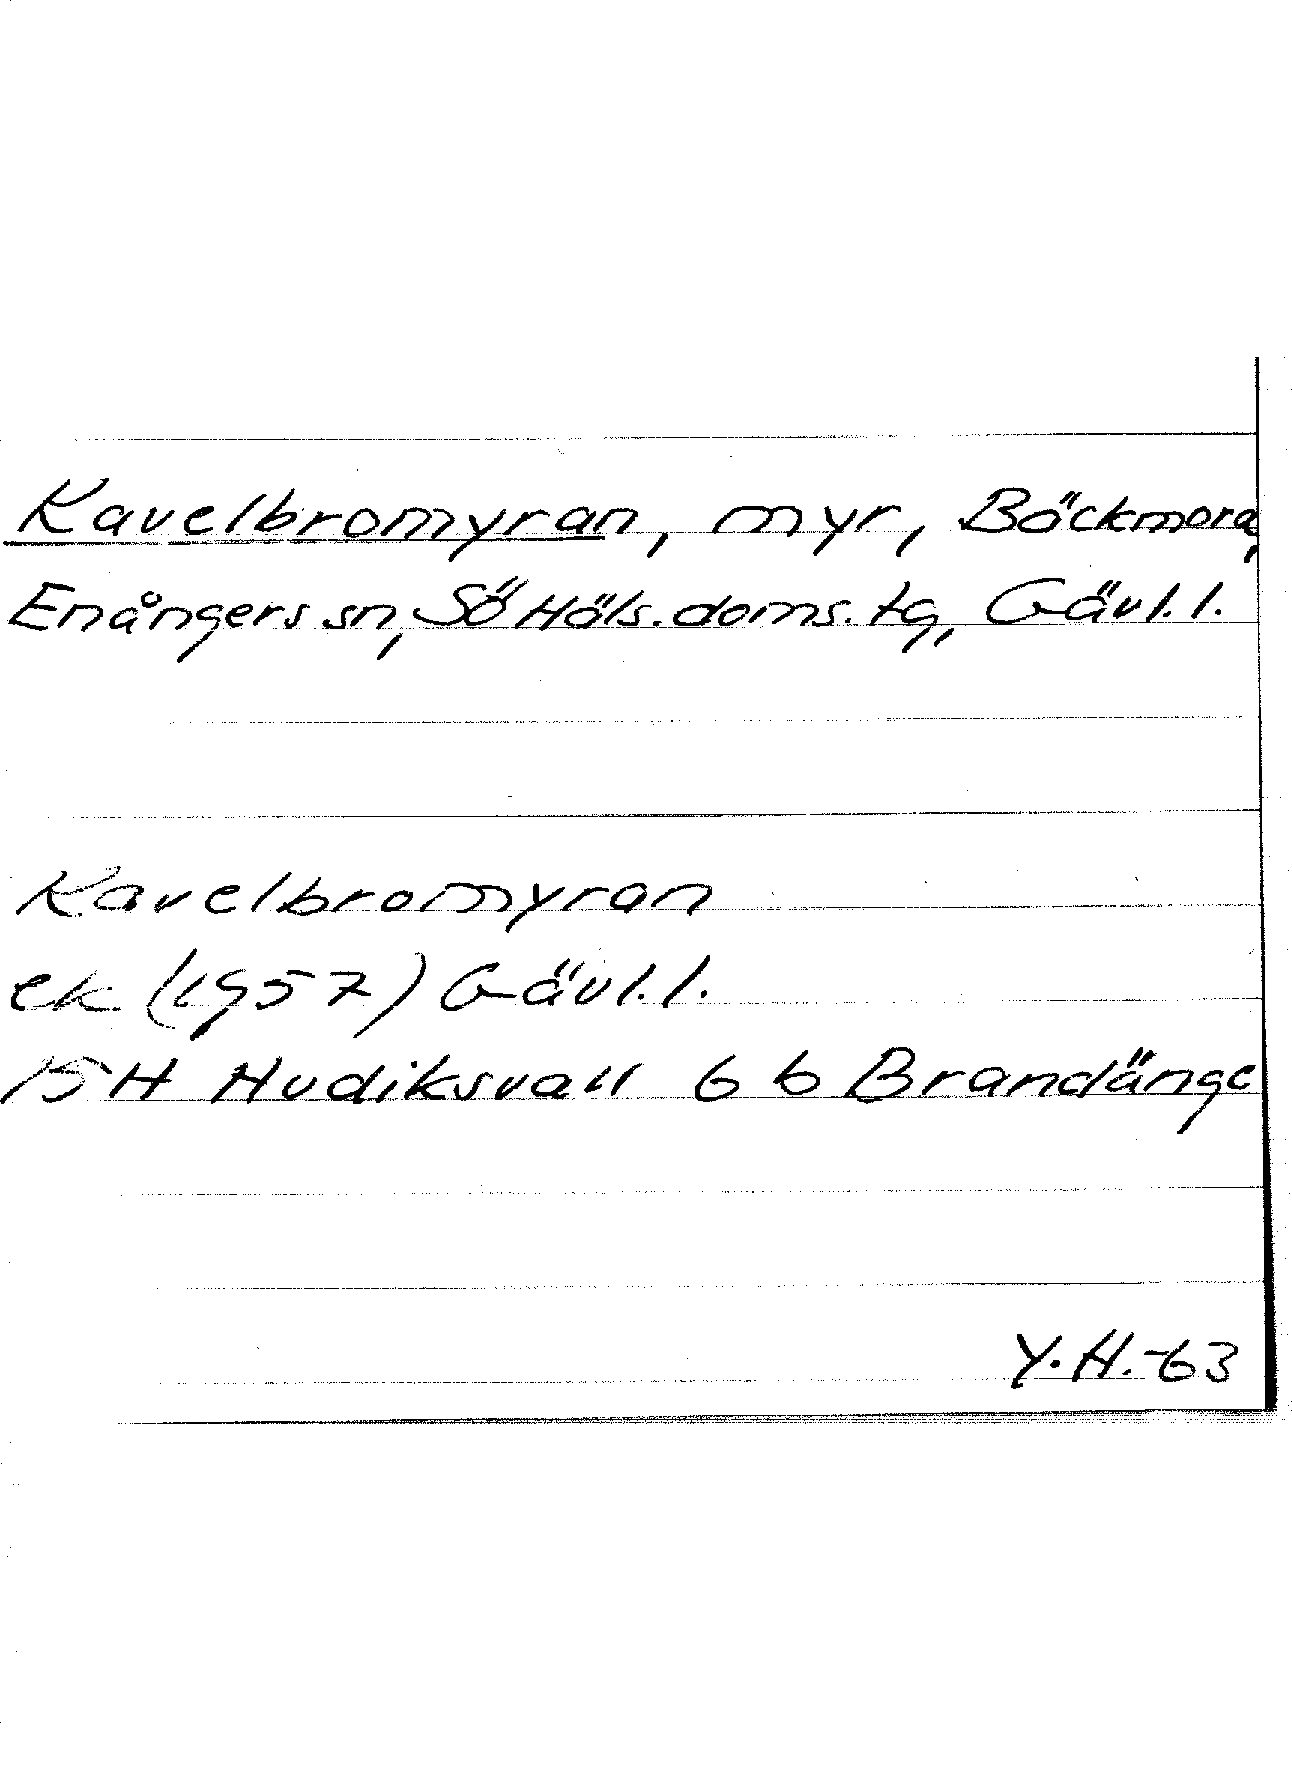 Kavelbromyran, myr, Böckmora,
Enångers sn, Sö Häls. doms. tg, Gävl. l.
Kavelbromyran
ek (1957) Gävl. l.
15 H Hudiksvall 6 b Brandänge
Y. H. -63